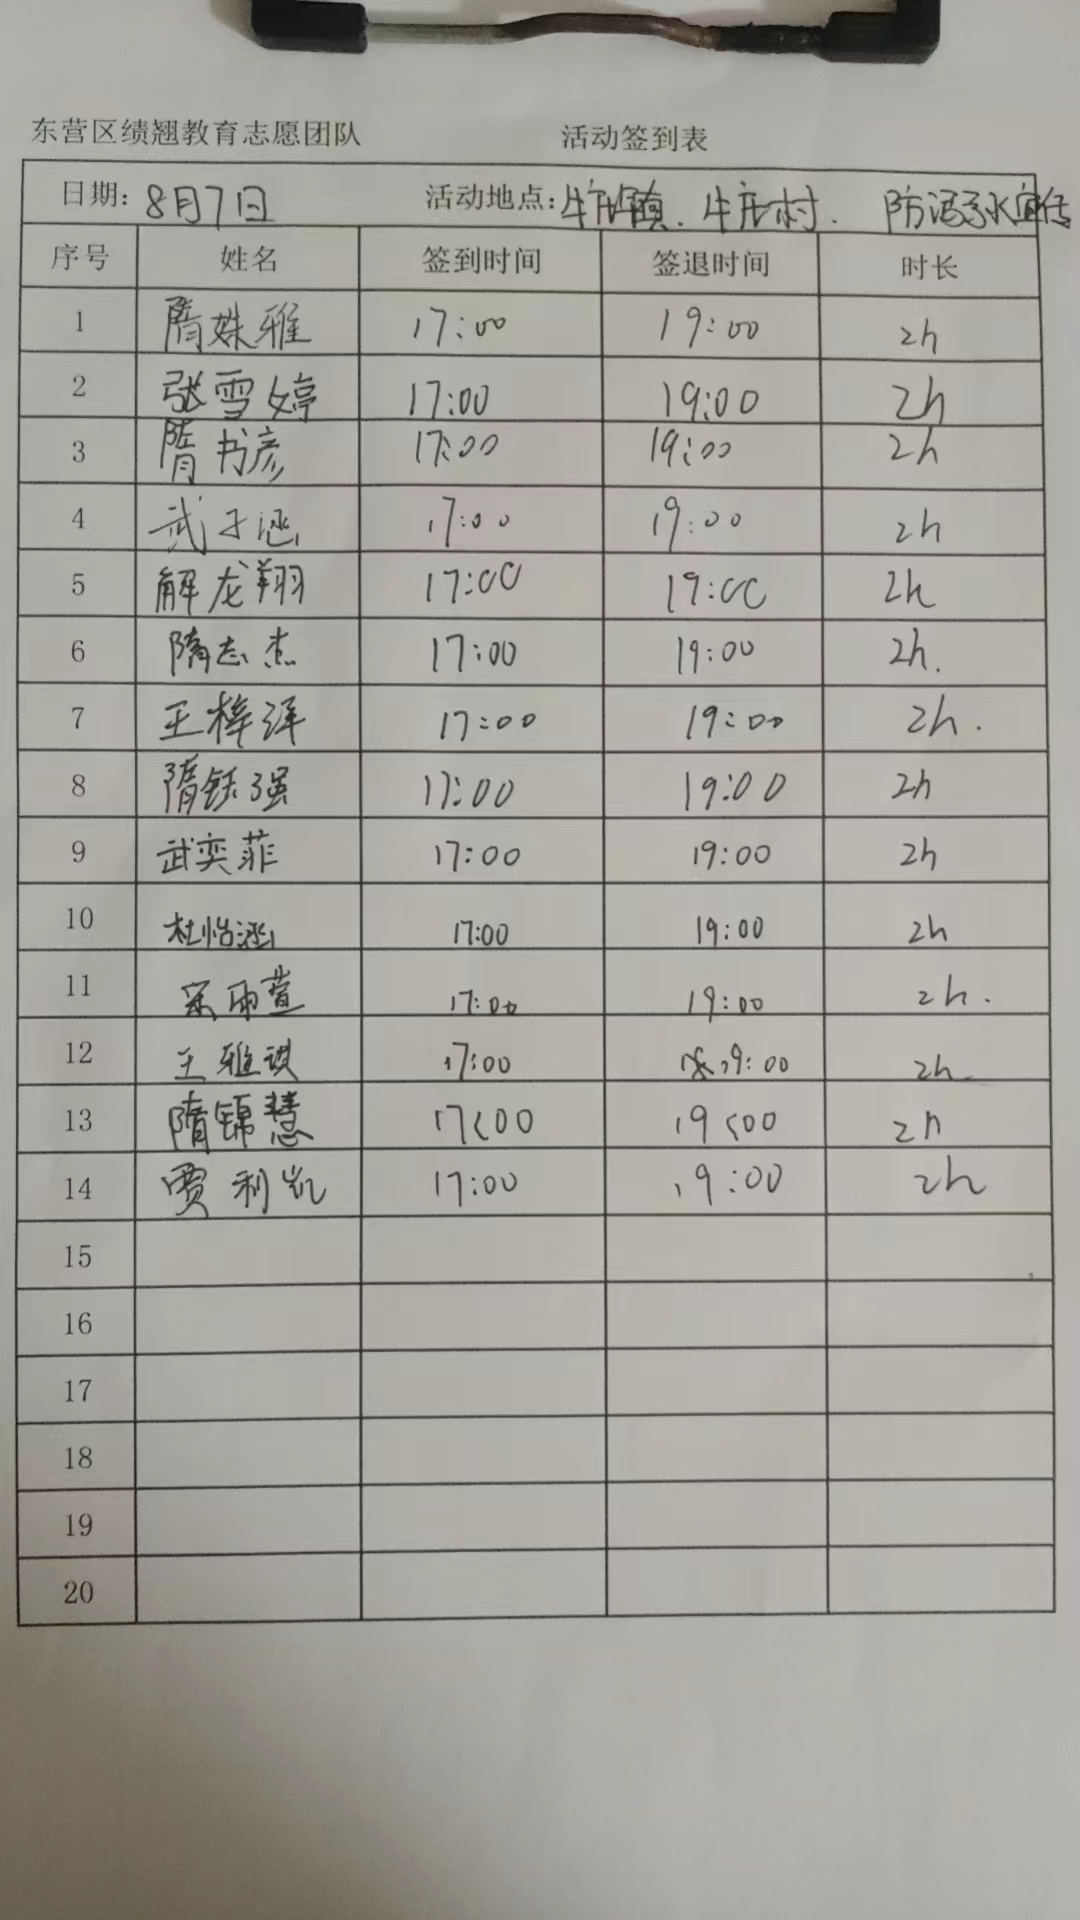 东营区绩翘教育志愿团队 活动签到表
日期: 8月7日 活动地点: 牛庄镇、牛庄村. 防溺水宣传
序号 姓名 签到时间 签退时间 时长
1 隋姝雅 17:00 19:00 2h
2 张雪婷 17:00 19:00 2h
3 隋书彦 17:00 19:00 2h
4 武子涵 17:00 19:00 2h
5 解龙翔 17:00 19:00 2h
6 隋志杰 17:00 19:00 2h.
7 王梓洋 17:00 19:00 2h.
8 隋钰强 17:00 19:00 2h
9 武奕菲 17:00 19:00 2h
10 杜怡涵 17:00 19:00 2h
11 宋雨萱 17:00 19:00 2h.
12 王雅琪 17:00 19:00 2h
13 隋锦慧 17:00 19:00 2h
14 贾利凯 17:00 19:00 2h
15
16
17
18
19
20